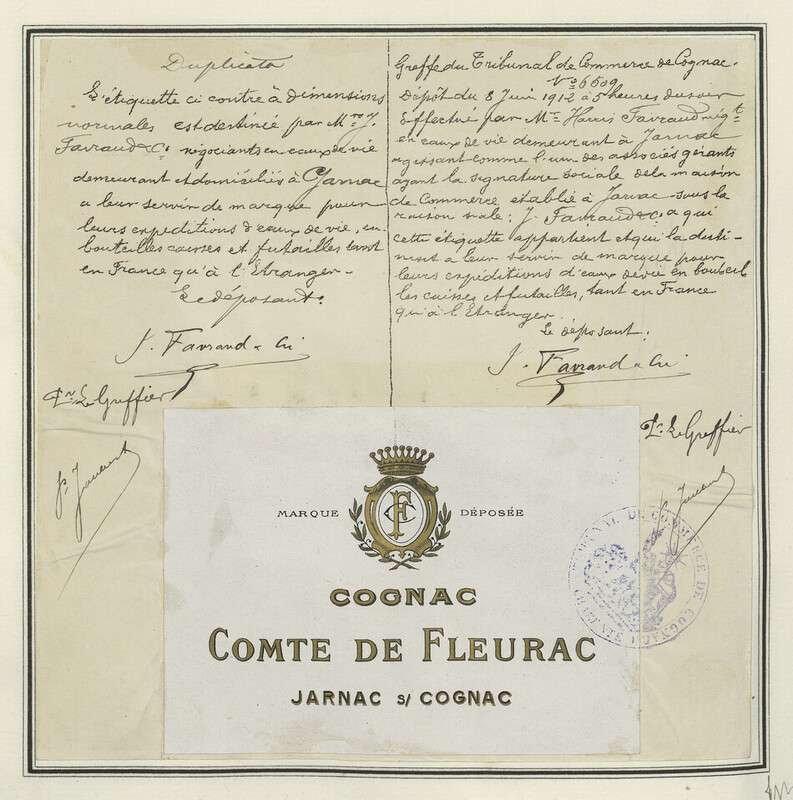 Duplicata
L'étiquette ci contre à dimensions
normales est destinée par Mrs J.
Favraud & Cie négociants en eaux de vie
demeurant et domiciliés à Jarnac
a leur servir de marque pour
leurs expéditions d'eaux de vie, en
bouteilles caisses et futailles tant
en France qu'à l'Etranger.
Le déposant:
J. Favraud & Cie
Pr Le Greffier
Greffe du Tribunal de Commerce de Cognac.
No 6609
Dépôt du 8 Juin 1912 à 5 heures du soir
Effectué par Mr Harris Favraud négt
en eaux de vie demeurant à Jarnac
agissant comme l'un des associés gérants
ayant la signature sociale de la maison
de Commerce établie à Jarnac sous la
raison sociale: J. Favraud & Cie a qui
cette étiquette appartient et qui la desti-
nent a leur servir de marque pour
leurs expéditions d'eaux de vie en bouteil
les caisses et futailles, tant en France
qu'à l'Etranger.
Le déposant:
J. Favraud & Cie
Pr Le Greffier
MARQUE DÉPOSÉE
COGNAC
COMTE DE FLEURAC
JARNAC s/ COGNAC
TRIBUNAL DE COMMERCE DE COGNAC